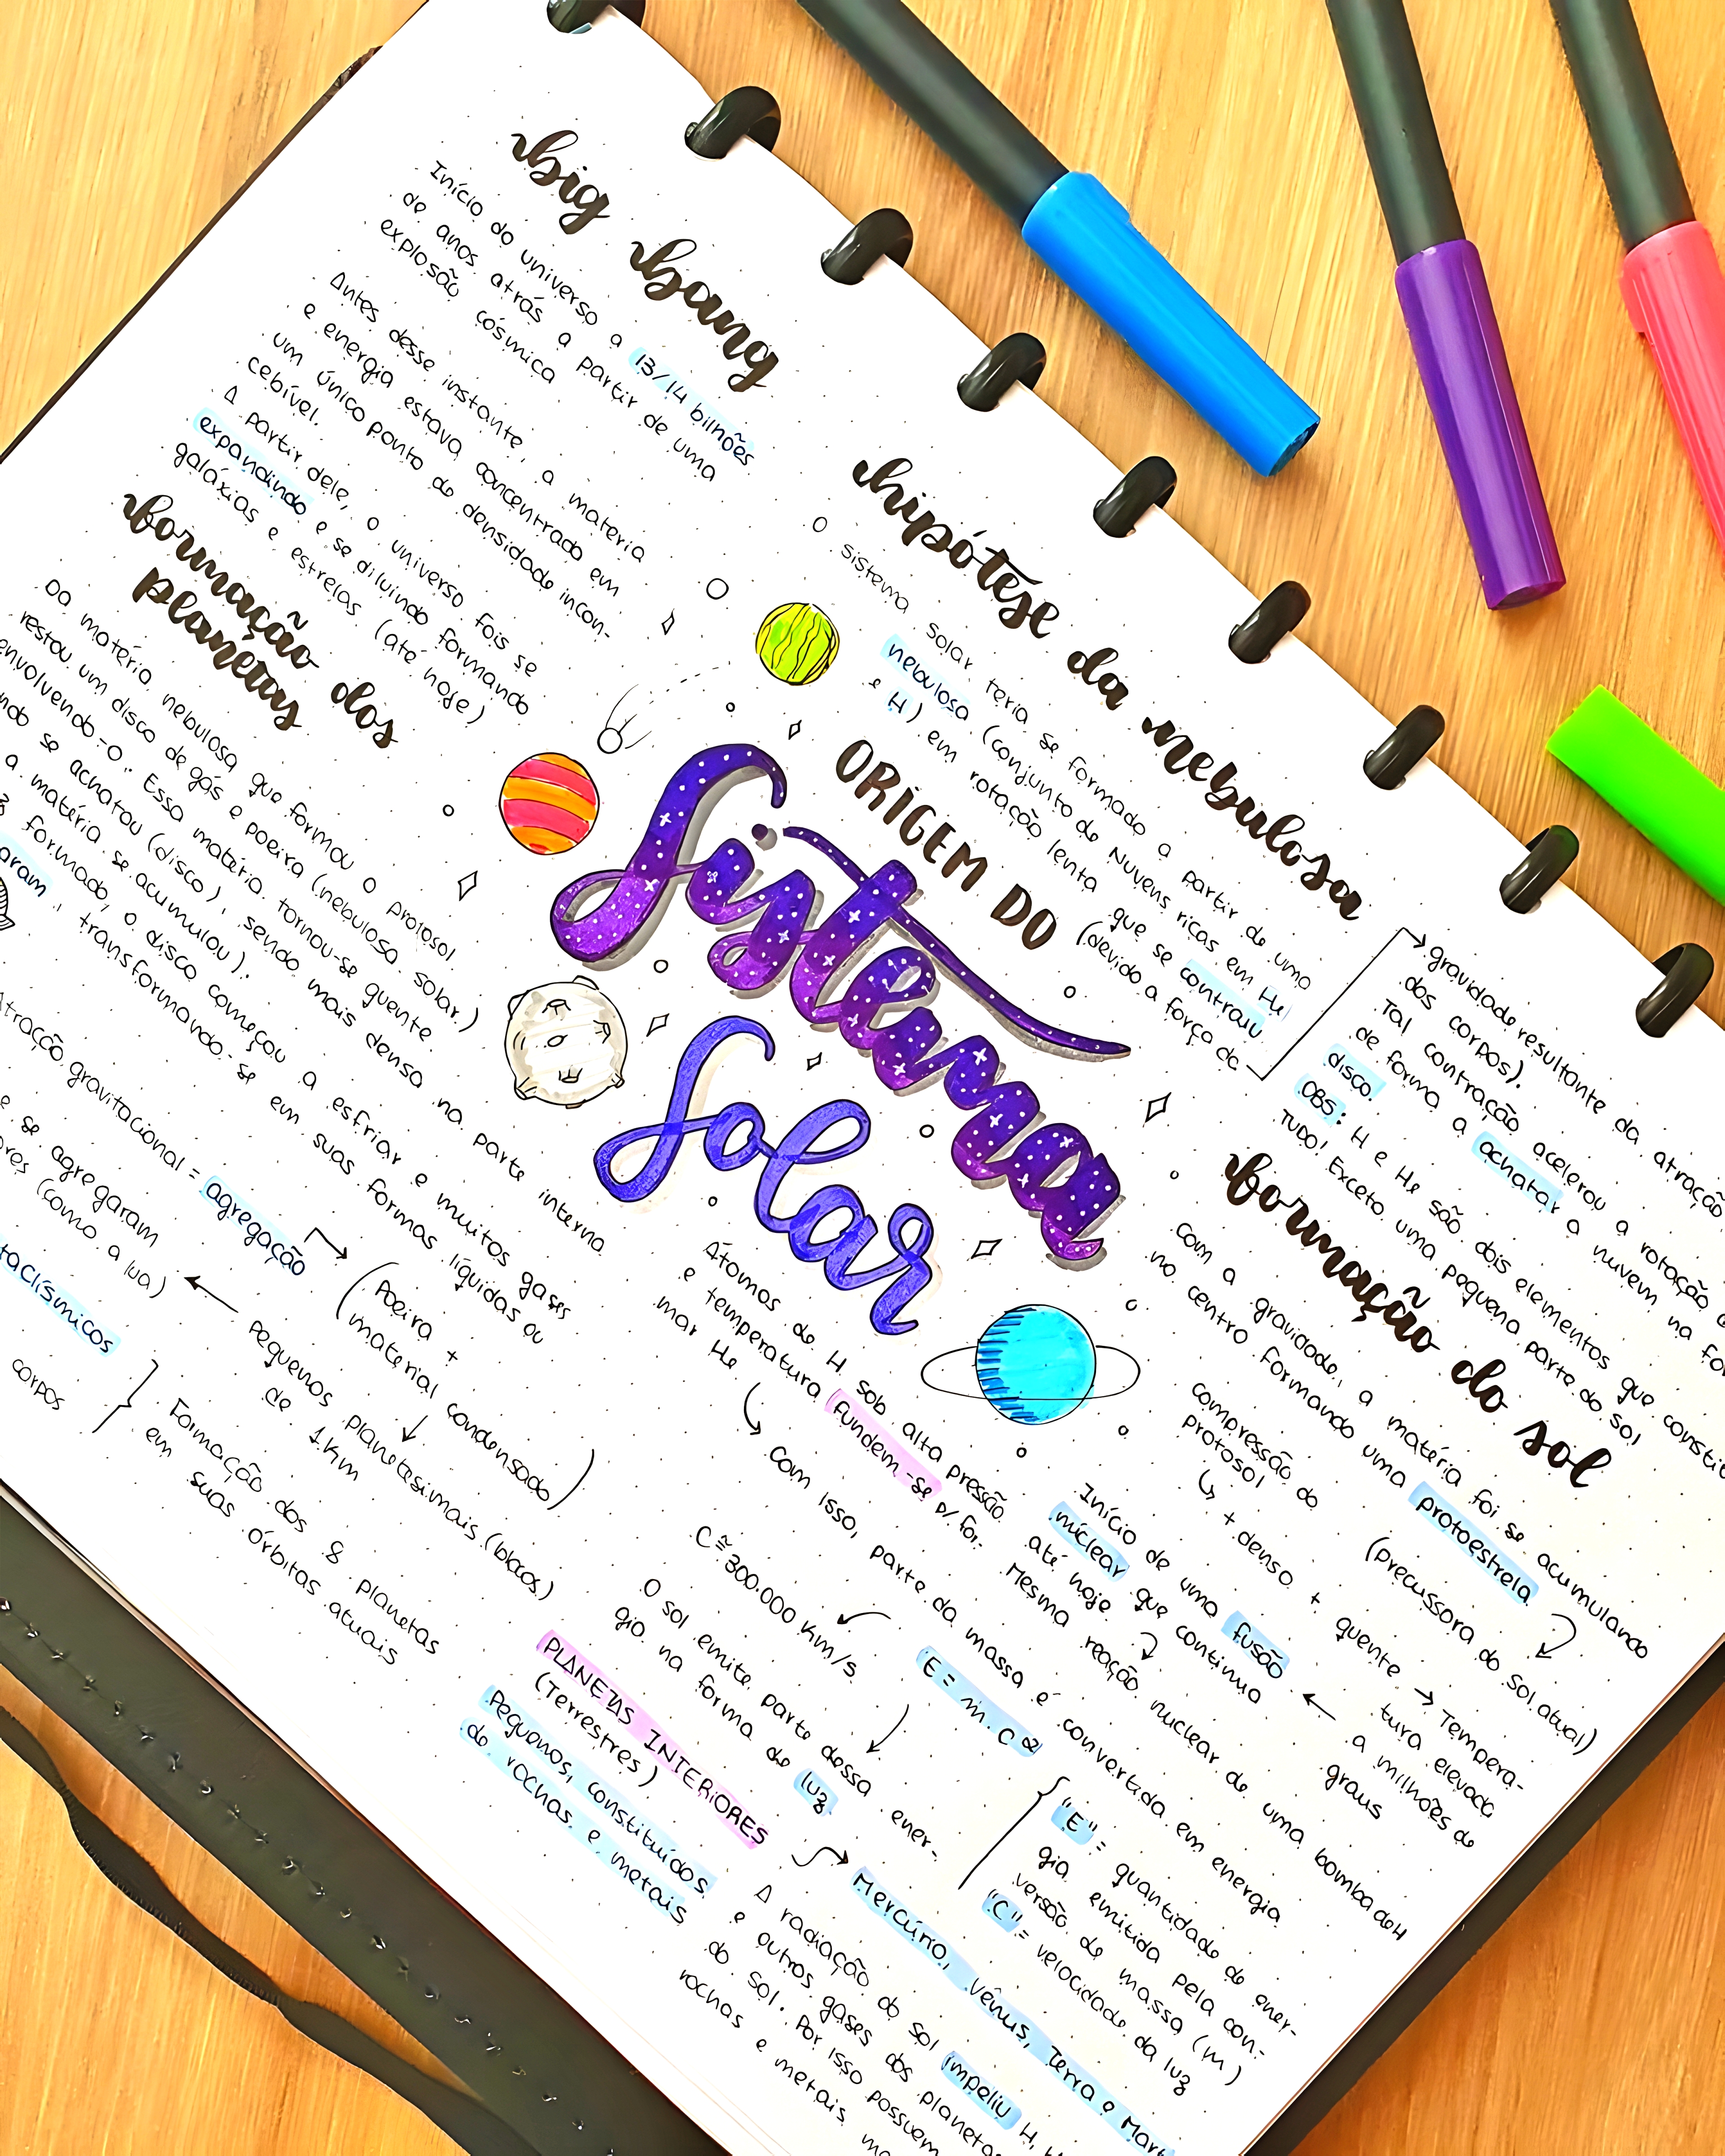 big bang
Início do universo a 13/14 bilhões
de anos atrás a partir de uma
explosão cósmica
Antes desse instante, a materia
e energia estava concentrado em
um único ponto de densidade incon-
cebível.
A partir dele, o universo fois se
expandindo e se diluindo formando
galáxias e estrelas (até hoje)
formação dos
planetas
Da matéria nebulosa que formou o protosol
restou um disco de gás e poeira (nebulosa solar.)
envolvendo-o. Essa matéria tornou-se quente
ndo se achatou (disco), sendo mais densa na parte interna
a matéria se acumulou).
formado, o disco começou a esfriar e muitos gases
aram, transformando-se em suas formas líquidas ou
Atração gravitacional = agregação
(Poeira +
material condensado)
pequenos planetesimais (blocos)
de 1km
e se agregaram
ores (como a lua)
taclísmicos
corpos
Formação dos 8 planetas
em suas órbitas atuais
ORIGEM DO
Sistema
Solar
hipótese da nebulosa
O sistema solar teria se formado a partir de uma
nebulosa (conjunto de nuvens ricas em He
e H) em rotação lenta que se contraiu
(devido a força da
gravidade resultante da atração
dos corpos).
Tal contração acelerou a rotação
de forma a achatar a nuvem na for
disco.
OBS: H e He são dois elementos que constit
TUDO! Exceto uma pequena parte do sol
formação do sol
Com a gravidade, a matéria foi se acumulando
no centro formando uma protoestrela
(precussora do sol atual)
compressão do
protosol
+ denso + quente → Tempera-
tura elevada
a milhões de
graus
Início de uma fusão
nuclear que continua
até hoje
Mesma reação nuclear de uma bomba de H
Átomos de H sob alta pressão
e temperatura fundem-se p/ for-
mar He
Com isso, parte da massa é convertida em energia
E = m.c²
C ≅ 300.000 km/s
"E" = quantidade de ener-
gia emitida pela con-
versão de massa (m)
"C" = velocidade da luz
O sol emite parte dessa ener-
gia na forma de luz
PLANETAS INTERIORES
(Terrestres)
Mercúrio, vênus, Terra e Mart
Pequenos, constituídos
de rochas e metais
A radiação do sol impeliu H,
e outros gases dos planetas
do sol. Por isso possuem
rochas e metais